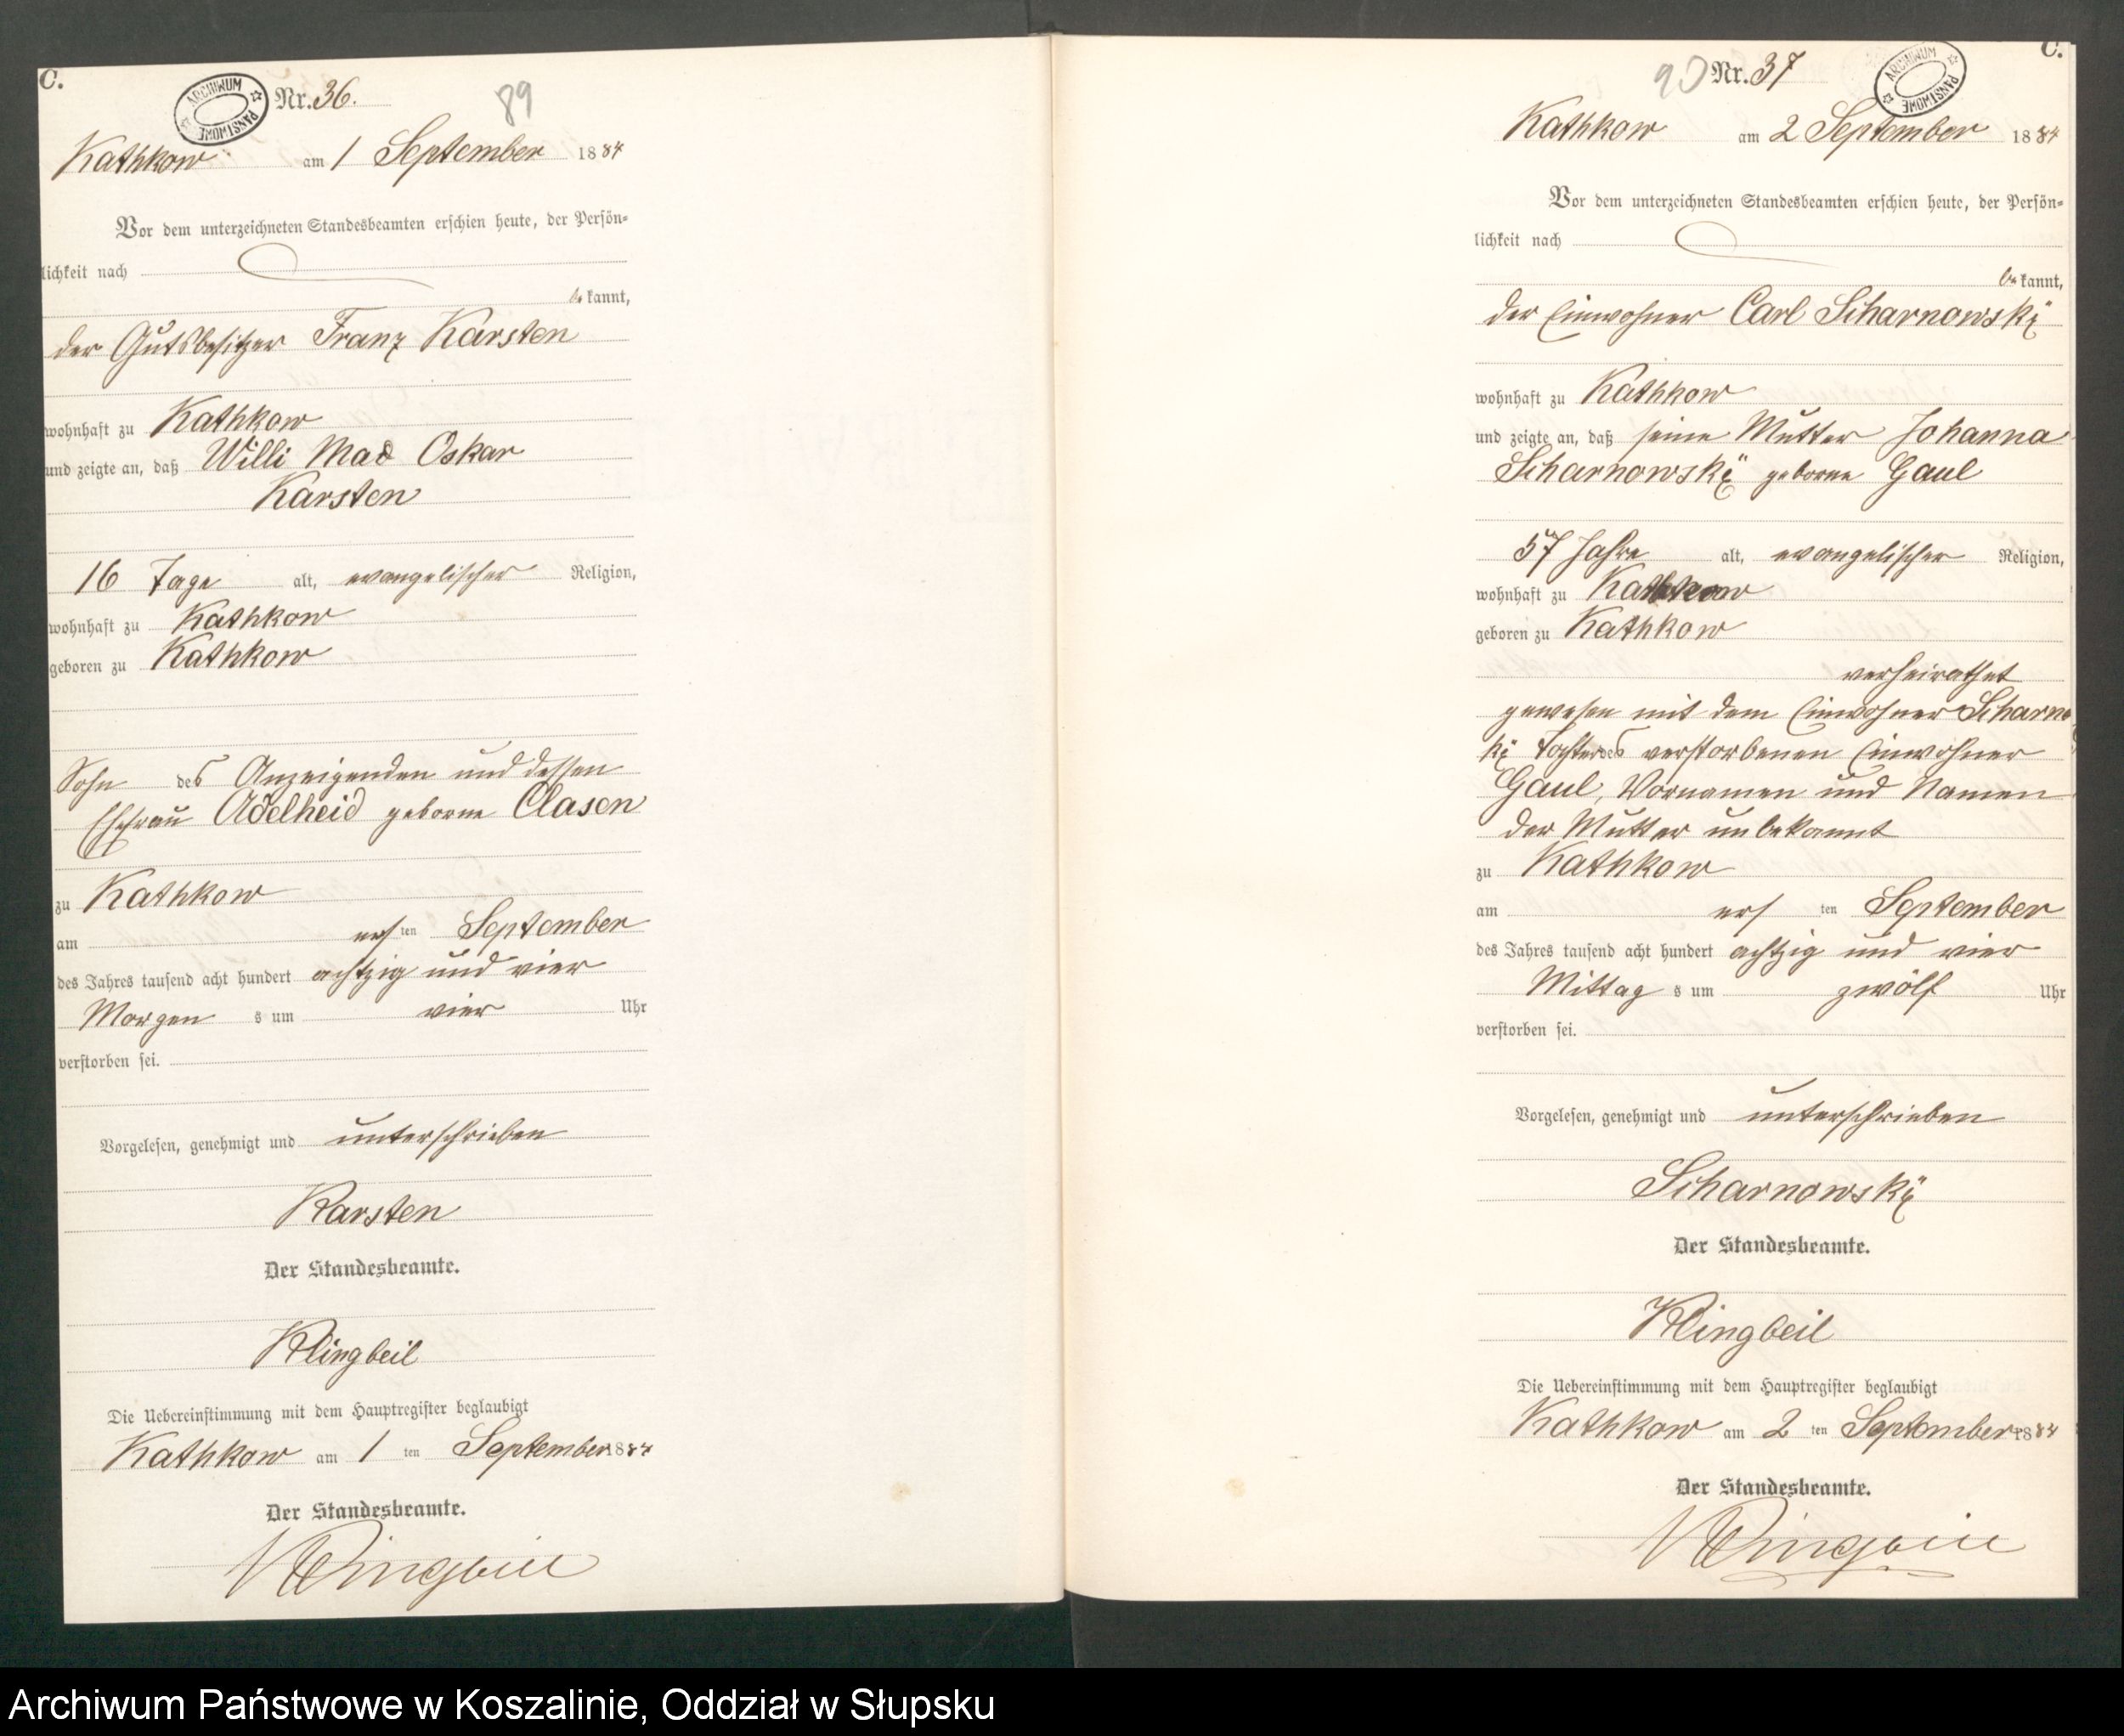 C.
ARCHIWUM PAŃSTWOWE
Nr. 36.
89
Kathkow am 1 September 1884
Vor dem unterzeichneten Standesbeamten erschien heute, der Persön-
lichkeit nach
be kannt,
der Gutsbesitzer Franz Karsten
wohnhaft zu Kathkow
und zeigte an, daß Willi Max Oskar
Karsten
16 Tage alt, evangelischer Religion,
wohnhaft zu Kathkow
geboren zu Kathkow
Sohn des Anzeigenden und dessen
Ehefrau Adelheid geborne Clasen
zu Kathkow
am ersten September
des Jahres tausend acht hundert achtzig und vier
Morgens um vier Uhr
verstorben sei.
Vorgelesen, genehmigt und unterschrieben
Karsten
Der Standesbeamte.
Klingbeil
Die Uebereinstimmung mit dem Hauptregister beglaubigt
Kathkow am 1 ten September 1884
Der Standesbeamte.
Klingbeil
C.
90 Nr. 37
ARCHIWUM PAŃSTWOWE
Kathkow am 2 September 1884
Vor dem unterzeichneten Standesbeamten erschien heute, der Persön-
lichkeit nach
be kannt,
der Einwohner Carl Scharnowskÿ
wohnhaft zu Kathkow
und zeigte an, daß seine Mutter Johanna
Scharnowskÿ geborne Gaul
57 Jahre alt, evangelischer Religion,
wohnhaft zu Kathkow
geboren zu Kathkow
verheirathet
gewesen mit dem Einwohner Scharnows
kÿ Tochter des verstorbenen Einwohner
Gaul, Vornamen und Namen
der Mutter unbekannt
zu Kathkow
am ersten September
des Jahres tausend acht hundert achtzig und vier
Mittags um zwölf Uhr
verstorben sei.
Vorgelesen, genehmigt und unterschrieben
Scharnowskÿ
Der Standesbeamte.
Klingbeil
Die Uebereinstimmung mit dem Hauptregister beglaubigt
Kathkow am 2 ten September 1884
Der Standesbeamte.
Klingbeil
Archiwum Państwowe w Koszalinie, Oddział w Słupsku